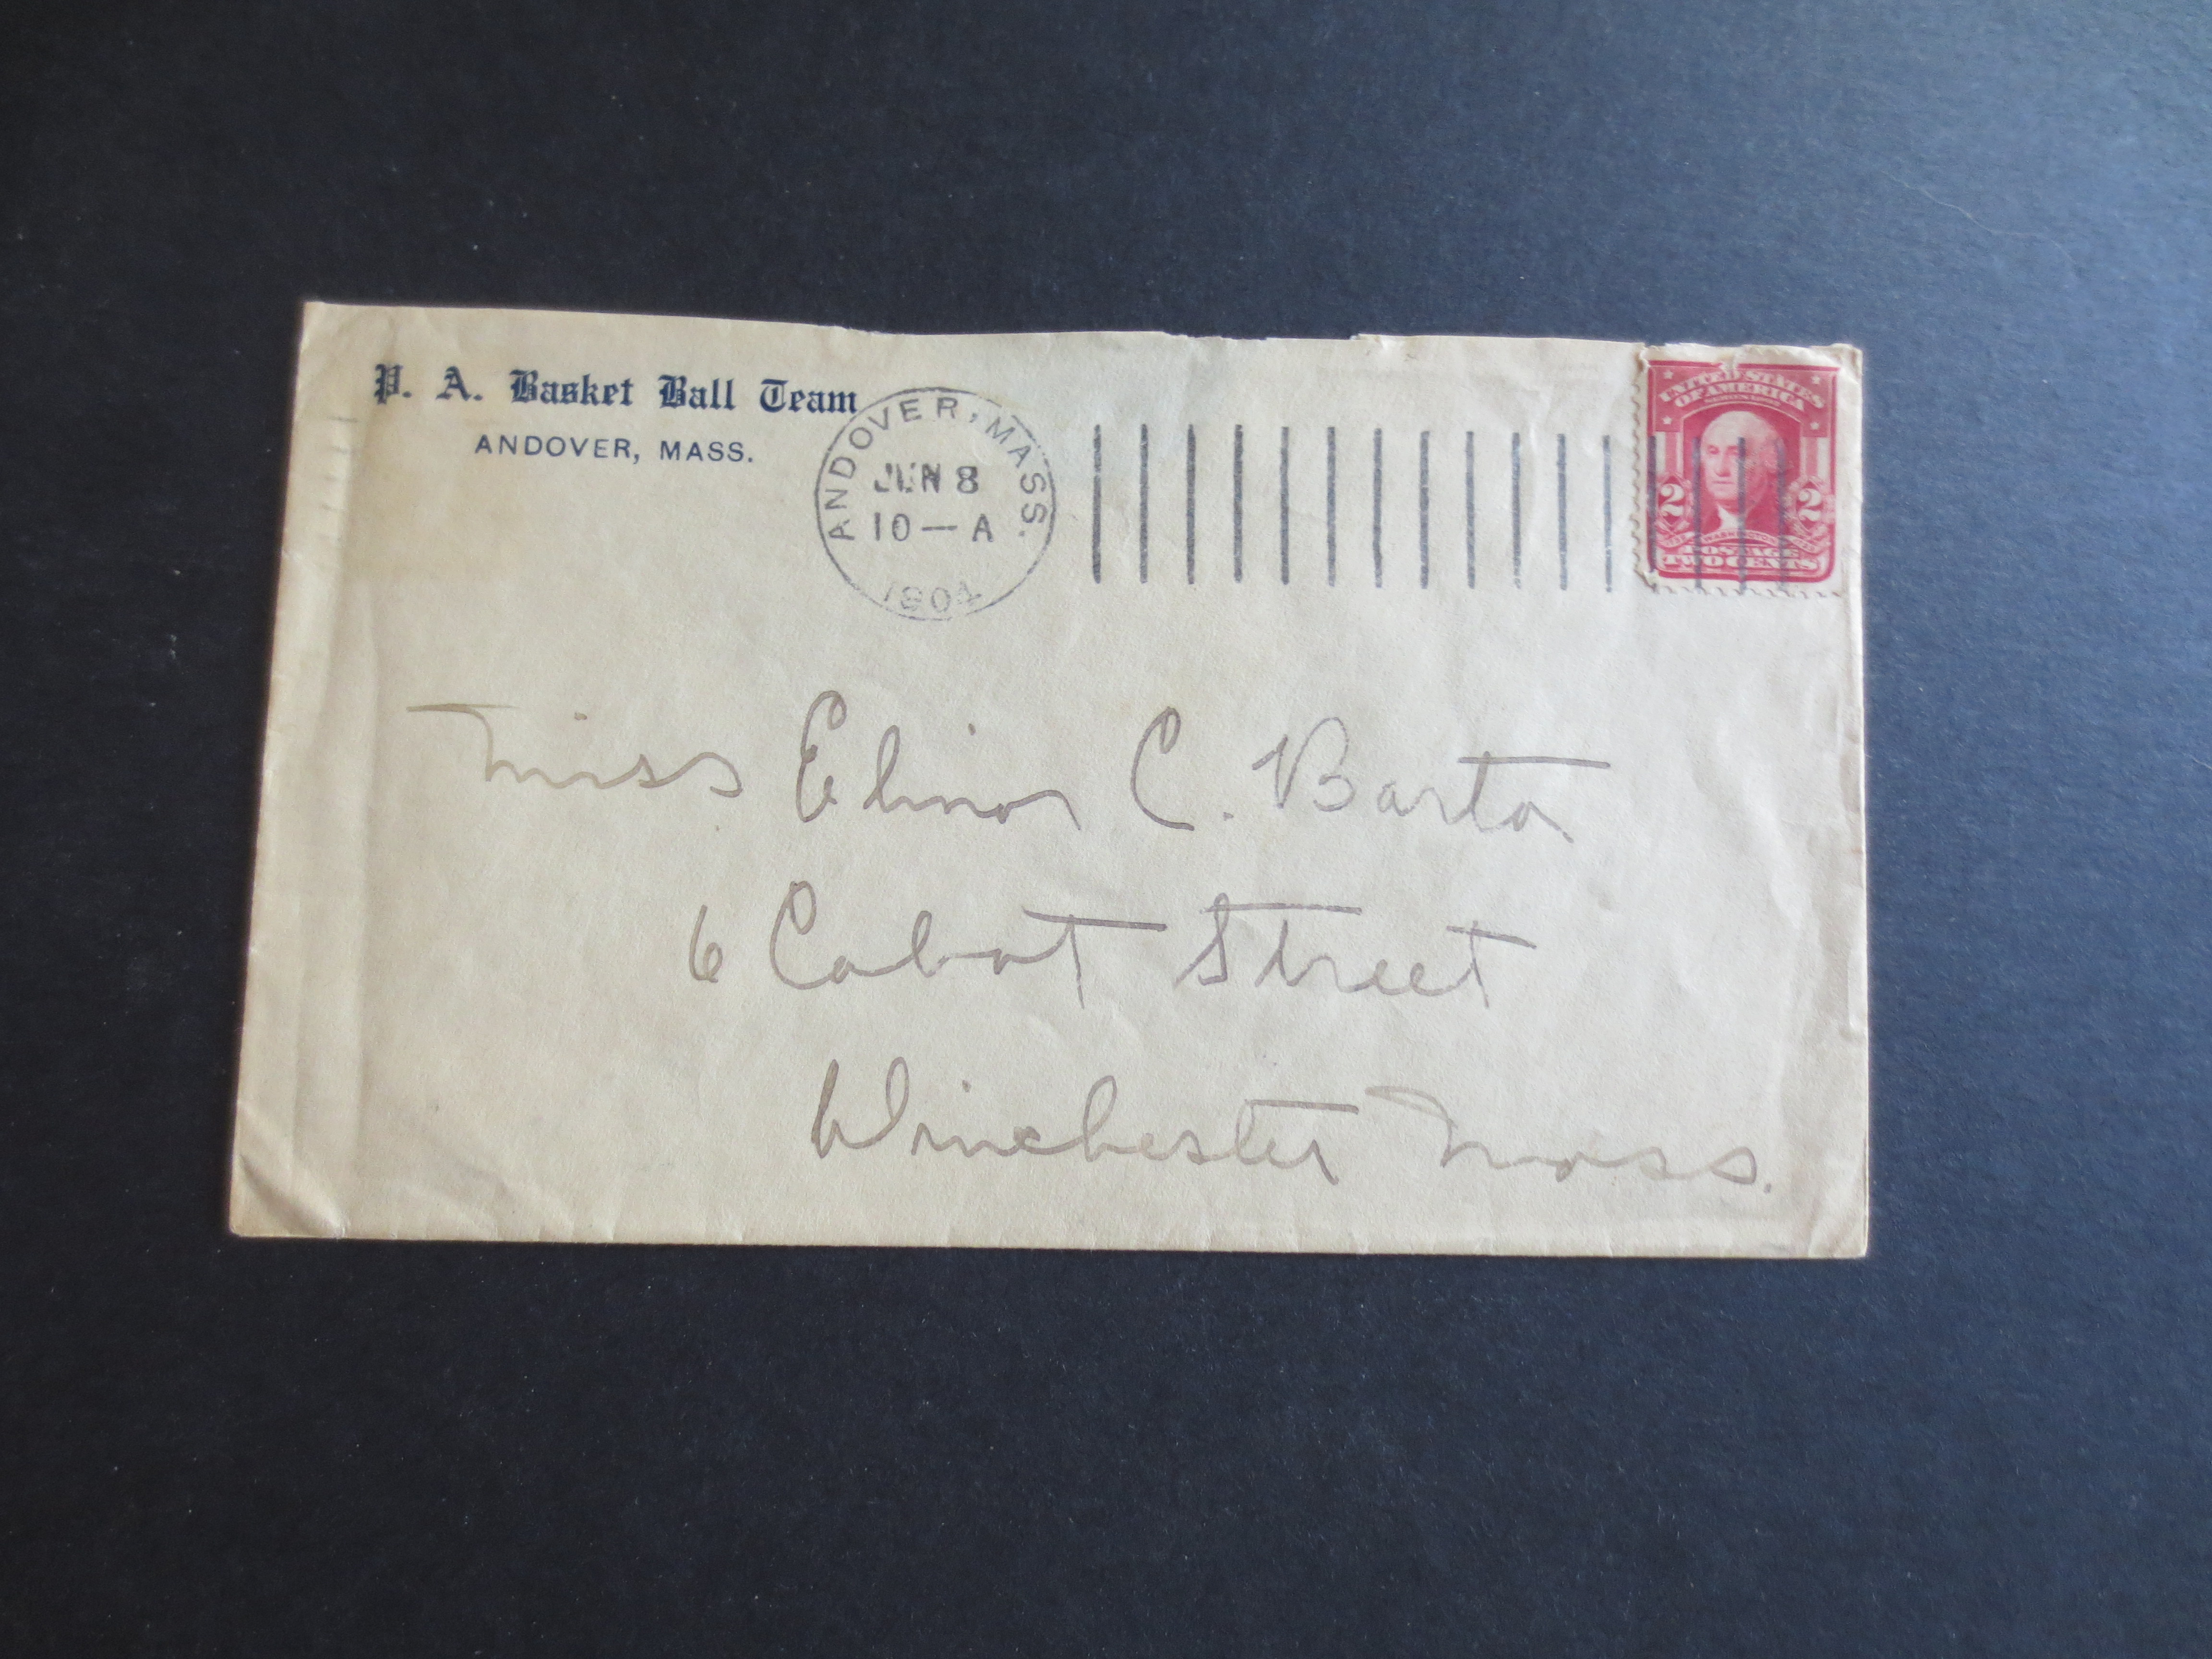 P. A. Basket Ball Team
ANDOVER, MASS.
ANDOVER, MASS.
JUN 8
10 — A
1904
UNITED STATES
OF AMERICA
2 2
WASHINGTON
POSTAGE
TWO CENTS
Miss Elinor C. Barta
6 Cabot Street
Winchester Mass.